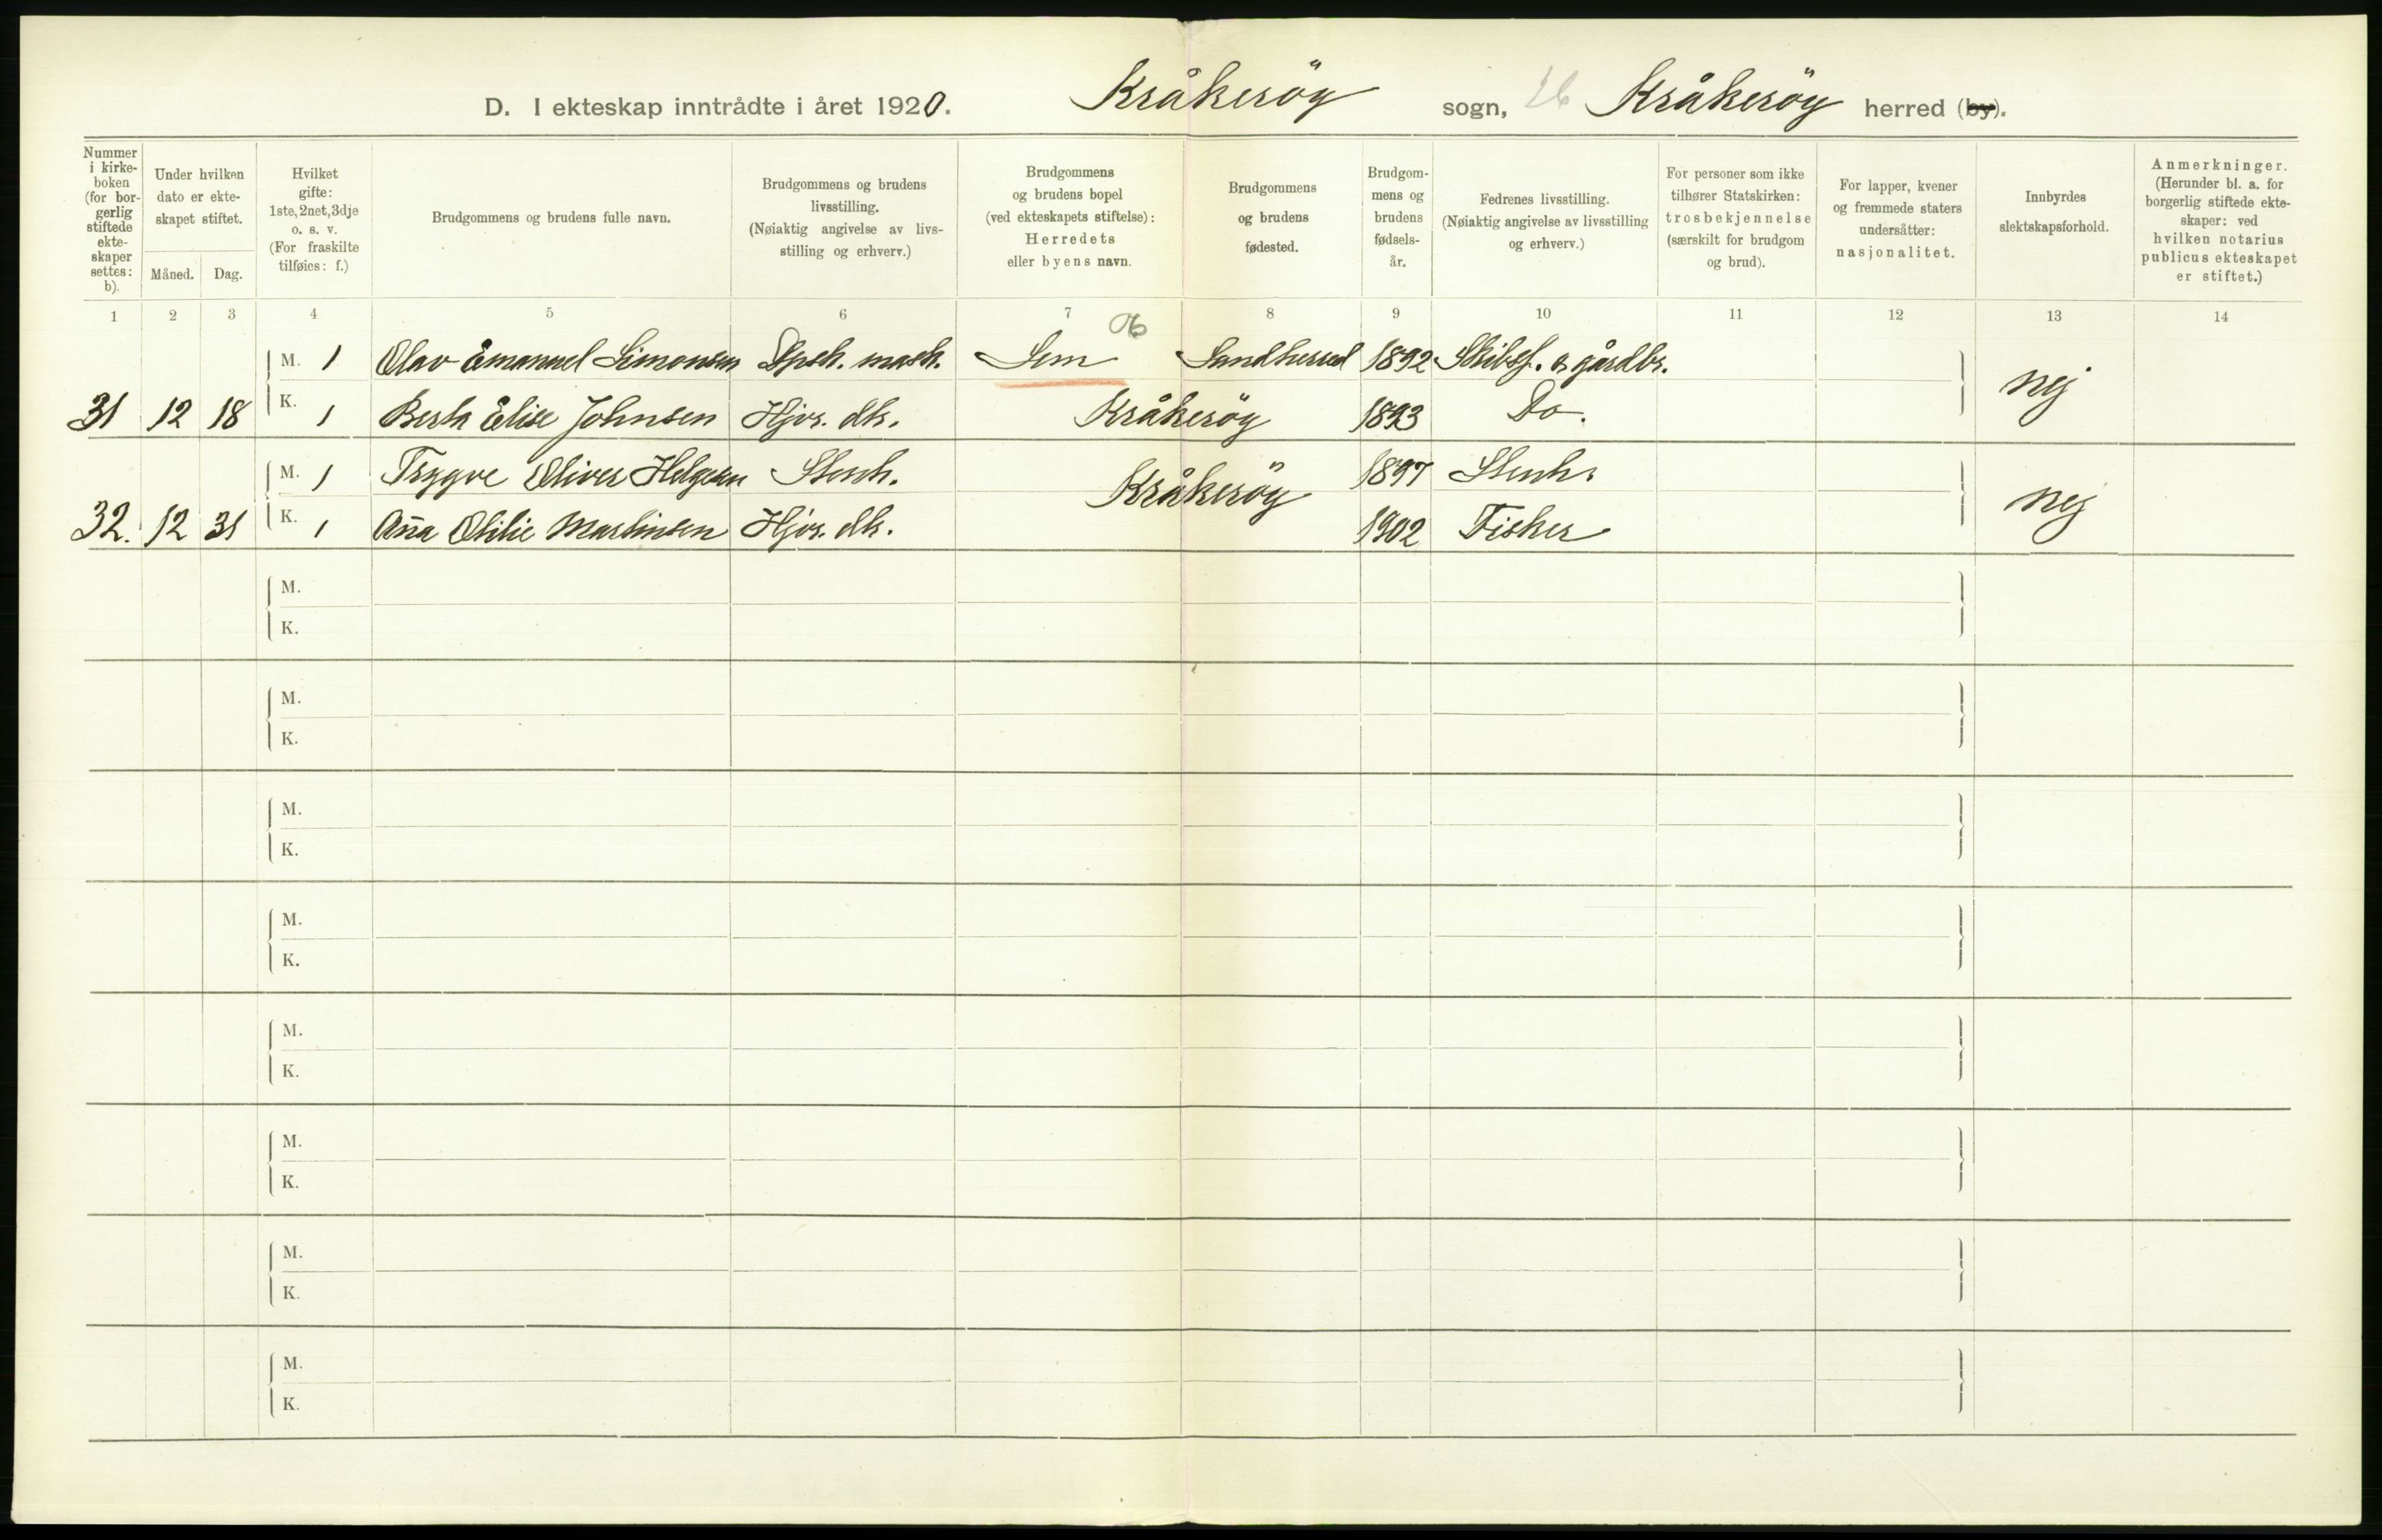 D. I ekteskap inntrådte i året 1920. Kråkerøy sogn, Kråkerøy herred (by).
Nummer i kirke-boken (for bor-gerlig stiftede ekte-skaper settes: b).
Under hvilken dato er ekte-skapet stiftet.
Måned. Dag.
Hvilket gifte: 1ste, 2net, 3dje o. s. v. (For fraskilte tilføies: f.)
Brudgommens og brudens fulle navn.
Brudgommens og brudens livsstilling. (Nøiaktig angivelse av livs-stilling og erhverv.)
Brudgommens og brudens bopel (ved ekteskapets stiftelse): Herredets eller byens navn.
Brudgommens og brudens fødested.
Brudgom-mens og brudens fødsels-år.
Fedrenes livsstilling. (Nøiaktig angivelse av livsstilling og erhverv.)
For personer som ikke tilhører Statskirken: trosbekjennelse (særskilt for brudgom og brud).
For lapper, kvener og fremmede staters undersåtter: nasjonalitet.
Innbyrdes slektskapsforhold.
Anmerkninger. (Herunder bl. a. for borgerlig stiftede ekte-skaper: ved hvilken notarius publicus ekteskapet er stiftet.)
1 2 3 4 5 6 7 8 9 10 11 12 13 14
M. 1 Olav Emanuel Simonsen Dpsk. mask. Sem Sandherred 1892 Skibsf. & gårdbr.
31 12 18 K. 1 Berta Elise Johnsen Hjvr. dtr. Kråkerøy 1893 Do. Nej
M. 1 Trygve Oliver Helgesen Stenh. Kråkerøy 1897 Stenh.
32. 12 31 K. 1 Aña Otilie Martinsen Hjvr. dtr. 1902 Fisker Nej
M.
K.
M.
K.
M.
K.
M.
K.
M.
K.
M.
K.
M.
K.
M.
K.